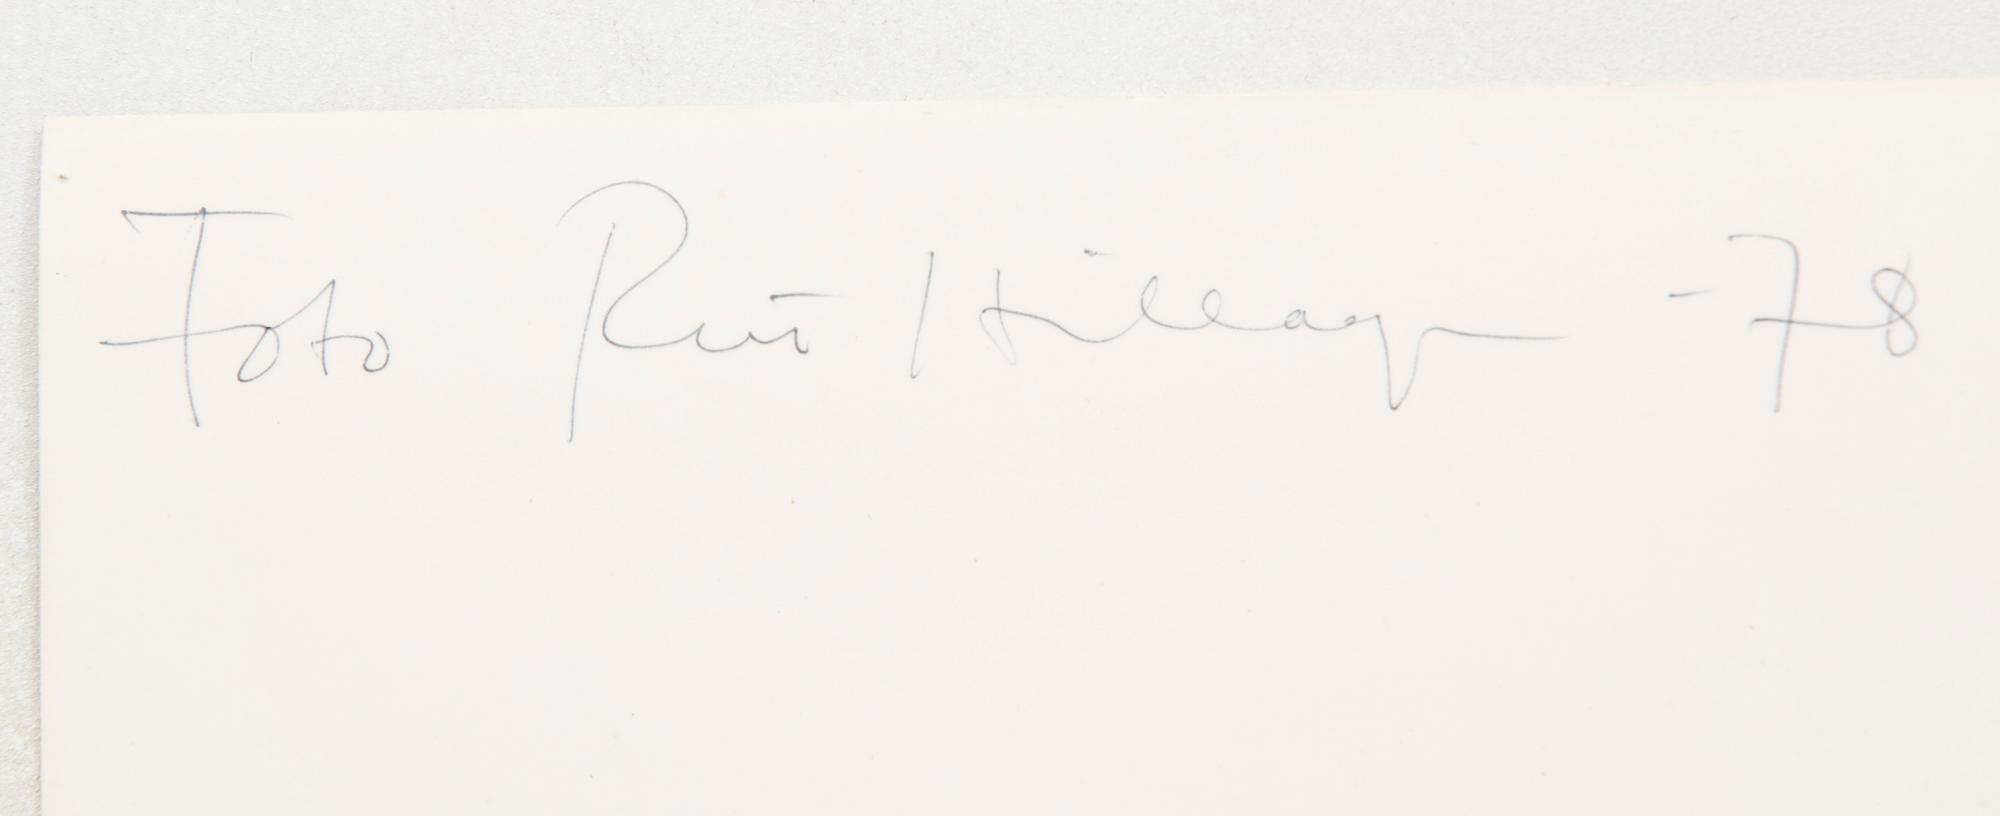 Foto Rut Hillarp -78